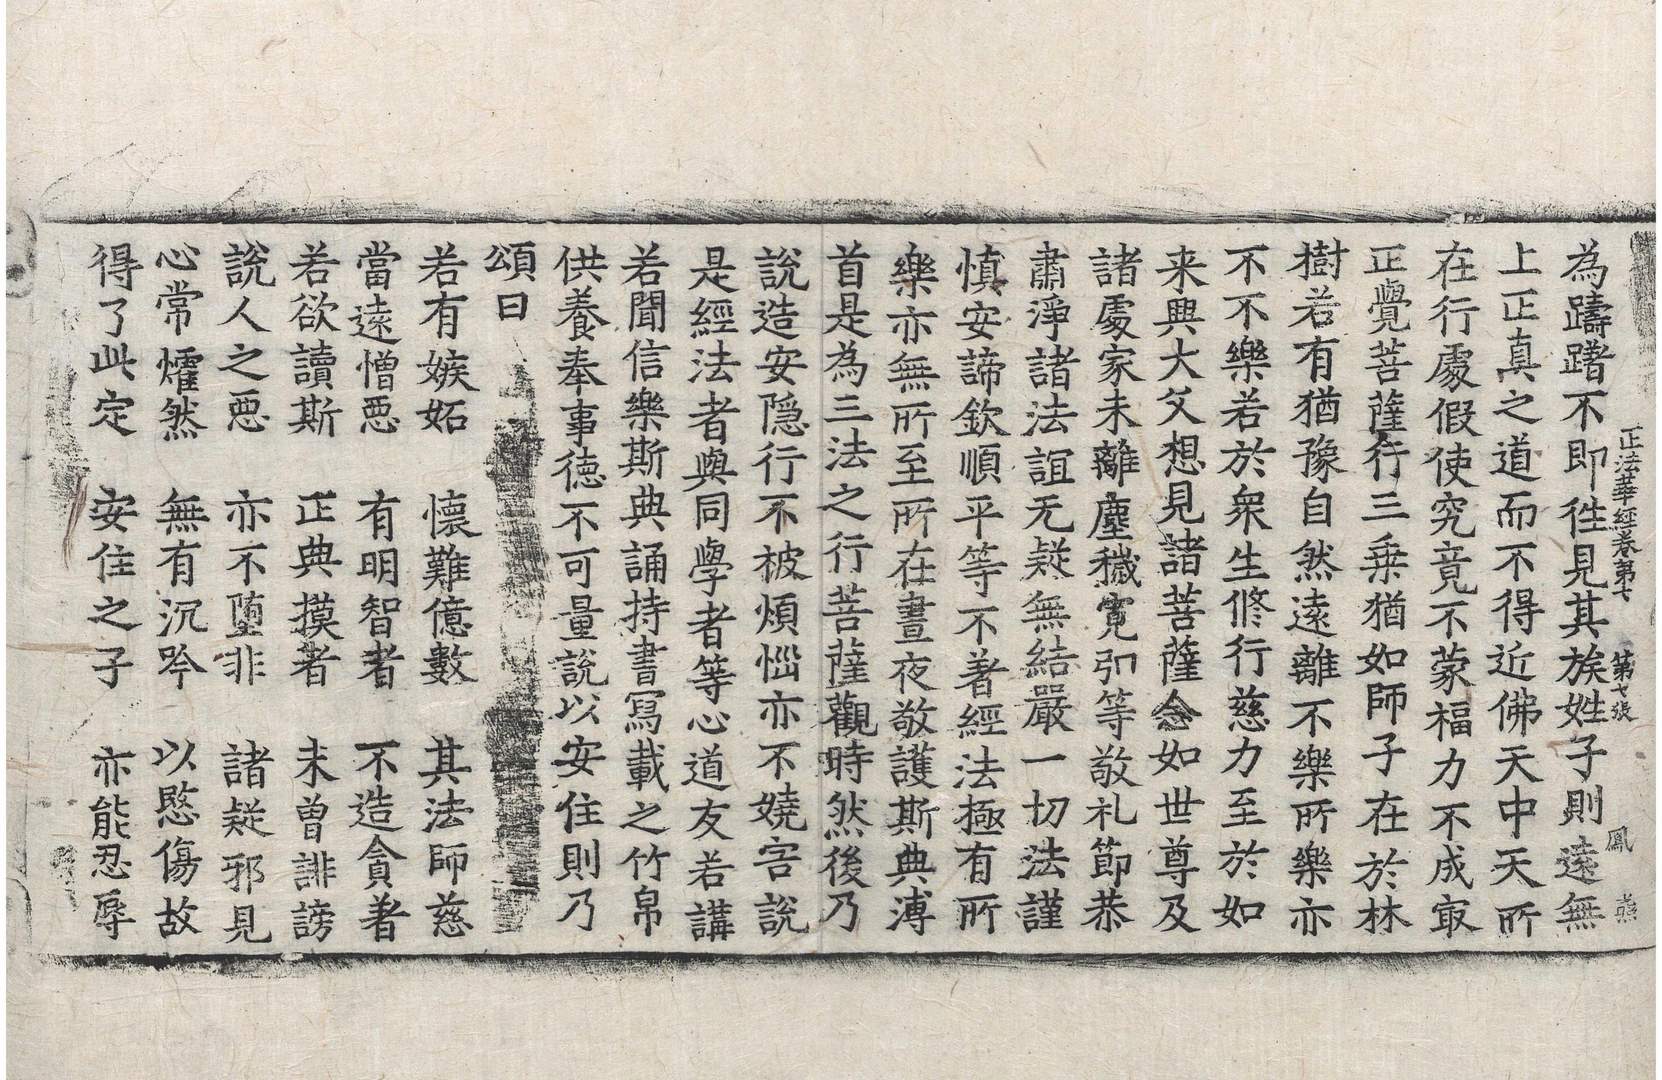 正法華經卷第七　第七張　鳳　燕
為躊躇不即徃見其族姓子則遠無
上正真之道而不得近佛天中天所
在行處假使究竟不蒙福力不成㝡
正覺菩薩行三乗猶如師子在於林
樹若有猶豫自然遠離不樂所樂亦
不不樂若於衆生修行慈力至於如
来興大父想見諸菩薩念如世尊及
諸處家未離塵穢寬弘等敬礼節恭
肅淨諸法誼无疑無結嚴一切法謹
慎安諦欽順平等不著經法極有所
樂亦無所至所在晝夜敬護斯典溥
首是為三法之行菩薩觀時然後乃
說造安隱行不被煩惱亦不嬈害說
是經法者與同學者等心道友若講
若聞信樂斯典誦持書寫載之竹帛
供養奉事德不可量說以安住則乃
頌曰
若有嫉妬　懷難億數　其法師慈
當遠憎惡　有明智者　不造貪者
若欲讀斯　正典摸者　未曾誹謗
說人之惡　亦不墮非　諸疑邪見
心常㸌然　無有沉吟　以愍傷故
得了此定　安住之子　亦能忍辱